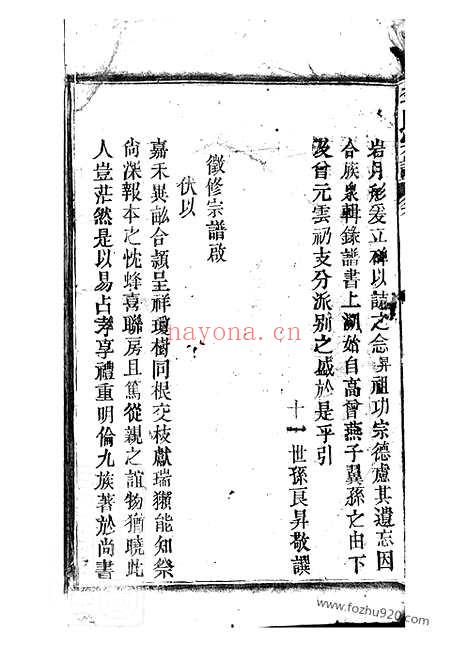 岩月彩爰立碑以誌之念昇祖功宗德慮其遺忘因
合族衆輯錄譜書上溯始自高曾燕子翼孫之由下
及曾元雲礽支分派別之盛於是乎引
十一世孫良昇敬譔
徵修宗譜啟
伏以
嘉禾異畝合穎呈祥瓊樹同根交枝獻瑞獺能知祭
尙深報本之忱蜂喜聯房且篤從親之誼物猶曉此
人豈茫然是以易占孝享禮重明倫九族著於尙書
hayona.cn
www.fozhu920.com